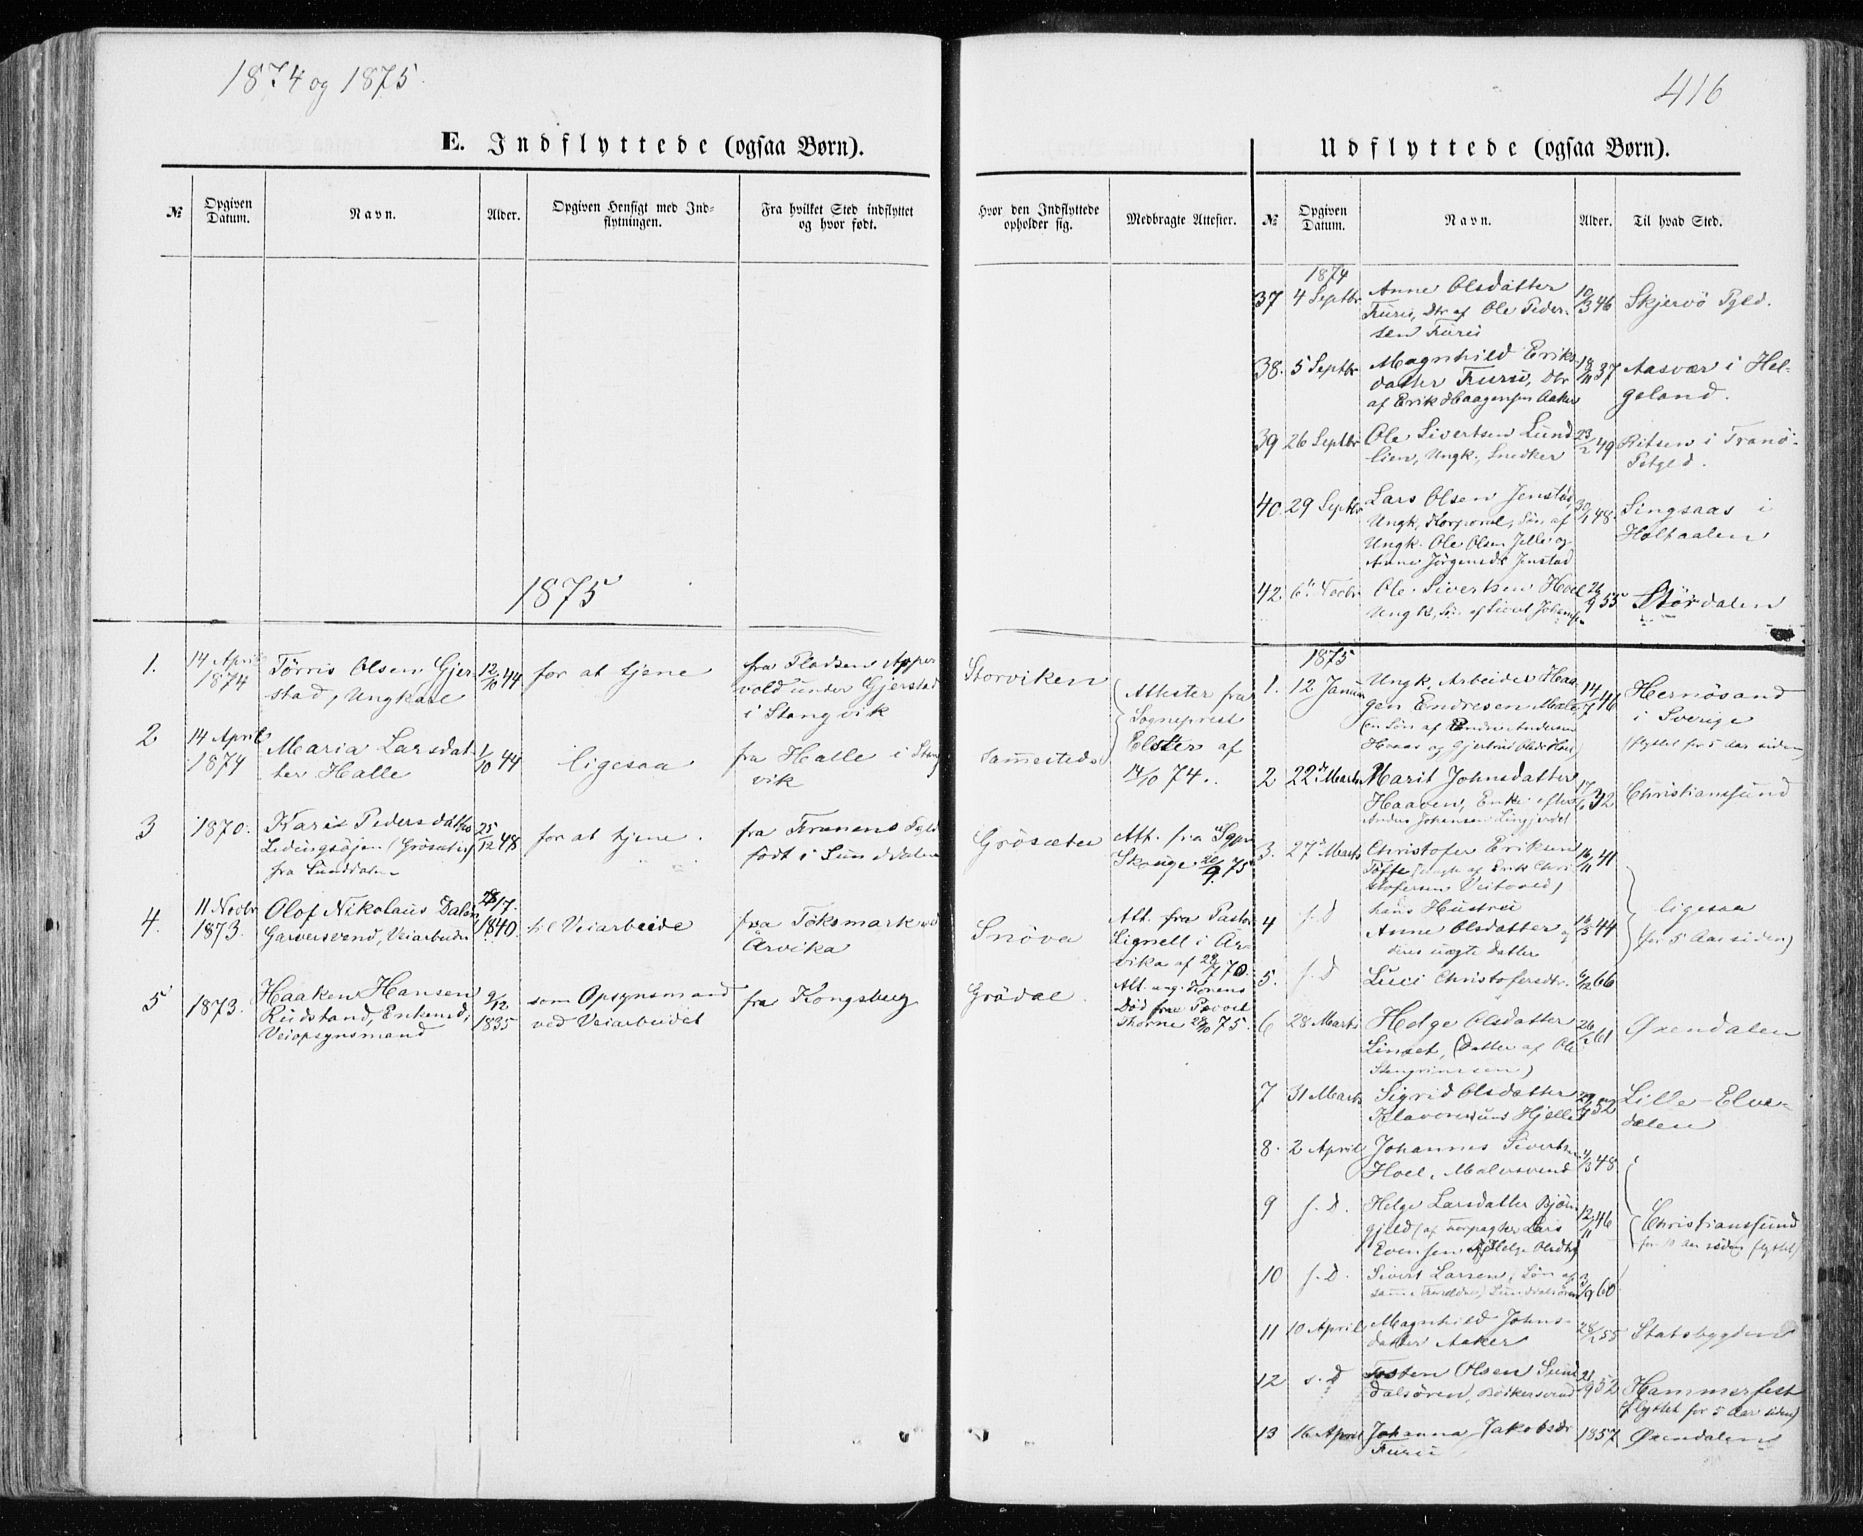 1874 og 1875.
416
E. Indflyttede (ogsaa Børn).
Udflyttede (ogsaa Børn).
№
Opgiven Datum.
Navn.
Alder.
Opgiven Hensigt med Ind-
flytningen.
Fra hvilket Sted indflyttet
og hvor født.
Hvor den Indflyttede
opholder sig.
Medbragte Attester.
№
Opgiven Datum.
Navn.
Alder.
Til hvad Sted.
1875
1. 14 April 1874
Tørris Olsen Gjer-
stad, Ungkarl
12/10 44
for at tjene
fra Pladsen Apper
vold under Gjerstad
i Stangvik
Storviken
Attester fra
Sogneprest
Elster af
14/10 74.
2 14 April 1874
Maria Larsdat-
ter Halle
1/10 44
ligesaa
fra Halle i Stang
vik
Sammesteds
3 1870.
Kari Pedersdatter
Ledingsøjen (Grøsæter)
fra Sunddalen
25/12 48
for at tjene.
fra Tranens Pgld
født i Sunddalen
Grøsæter
Att. fra Sgpr.
Skauge 20/9 75
4. 11 Novbr 1873.
Olof Nikolaus Dalin
Garversvend, Veiarbeider
1840.
til Veiarbeide
fra Töksmark ved
Arvika
Snøva
Att. fra Pastor
Lignell i Ar-
vika af 28/7 70.
5 1873.
Haaken Hansen
Rudstand, Enkemd,
Veiopsynsmand
9/12 1835
som Opsynsmand
ved Veiarbeidet
fra Kongsberg
Grødal.
Att. ang. Konens
Død fra Provst
Thorne 28/10 75.
1874
37 4 Septbr
Anne Olsdatter
Furu, Dtr af Ole Peder-
sen Furu
10/3 46
Skjervö Pgld.
38. 5 Septbr
Magnhild Eriks-
datter Furu, Dtr
af Erik Haagensen Aaker
18/11 37
Aasvær i Hel-
geland.
39 26 Septbr
Ole Sivertsen Lund
lien, Ungk., Snedker
23/2 49
i Tranö-
Pstgld.
40. 29 Septbr
Lars Olsen Jenstad,
Ungk, Korporal, Søn af
Ungk. Ole Olsen Jelle og
Anne Jörgensdr Jenstad
30/1 48.
Singsaas i
Holtaalen
42.
Ole Sivertsen Hoel
Ungk, Søn af Sivert
26/9 55
Stördalen
1875
1. 12 Januar
Ungk. Arbeider Haa-
gen Endresen
(en Søn af Endre Andersen
14/7 46
Hernösand
i Sverige
(flyttet for 5 aar siden)
2 22 Marts
Marit Johnsdatter
Haaven, Enke efter
Anders Johansen
17/6 32
Christiansund
3. 27 Marts
Christofer Eriksen
Töffte, af Erik Chri
stofersen
16/11 41
ligesaa
(for 5 Aar siden)
4 s. D
hans Hustru
Anne Olsdatter og
deres uægte Datter
13/3 44
5. s. D
Luci Christofersdr.
6/12 66
6 28 Marts
Helge Olsdatter
Linset, (Datter af Ole
Stengrimssen)
26/2 61
Øxendalen
7 31 Marts
Sigrid Olsdatter
Hjelle
52
Lille-Elve-
dalen
8. 2 April
Johannes Sivertsen
Hoel, Malersvend
4/3 48
9 s. D.
Helge Larsdatter Bjør
gjeld (af Forpagter Lars
Evensen og Helge Olsdtr)
12/11 46
Christiansund
for 10 aar siden flyttet)
10 s. D.
Sivert Larsen, Søn af
samme Forældre, Sundalsören
3/9 60
11 10 April
Magnhild Johns-
datter Aaker
28/1 55
Statsbygden
12 s. D
Tosten Olsen Sund
dalsören, Bødkersvend
21/9 52
Hammerfest
(flyttet for 5 Aar siden)
13 16 April
Johanna Jakobsdr
Furu
1857
Øxendalen